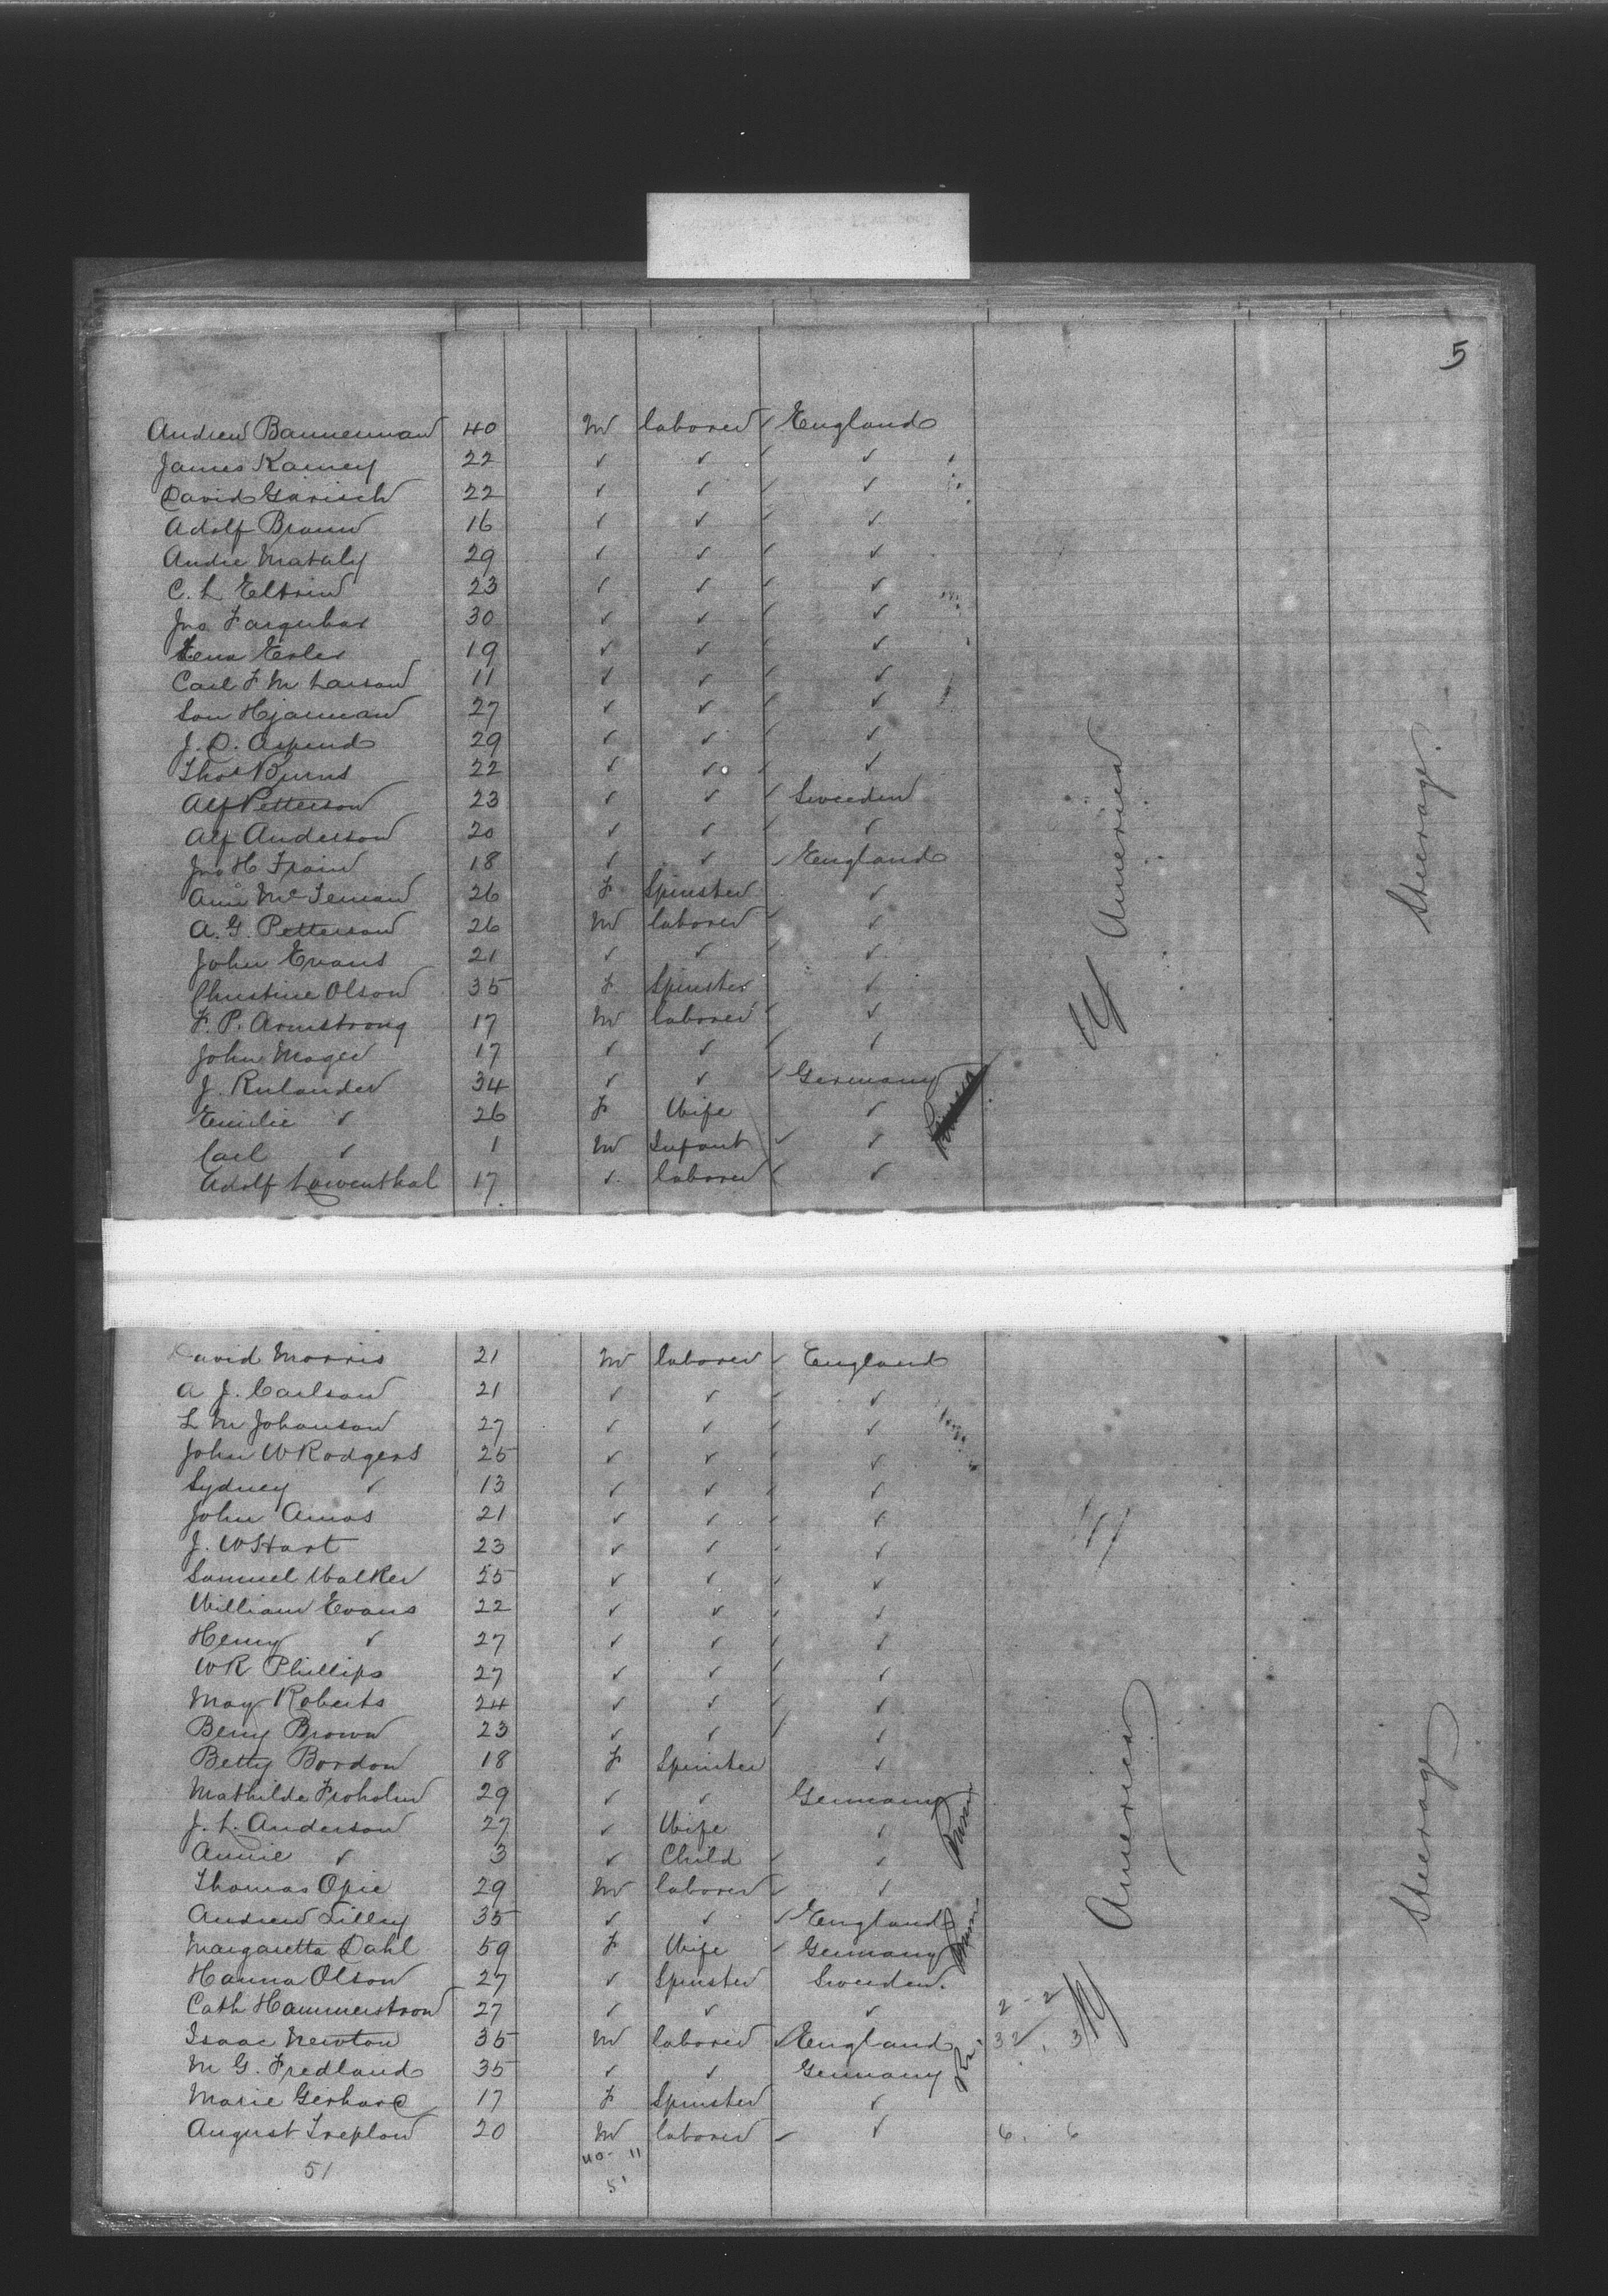 5
Andrew Bannerman 40 M laborer ✓ England
James Kamey 22 ✓ ✓ ✓ ✓
David Garisch 22 ✓ ✓ ✓ ✓
Adolf Braun 16 ✓ ✓ ✓ ✓
Andre Mataly 29 ✓ ✓ ✓ ✓
C. L 23 ✓ ✓ ✓ ✓
Jno Farquhar 30 ✓ ✓ ✓ ✓
Lena 19 ✓ ✓ ✓ ✓
Carl F M Larson 11 ✓ ✓ ✓ ✓
Hjarman 27 ✓ ✓ ✓ ✓
J. O. Aspend 29 ✓ ✓ ✓ ✓
Thos Burns 22 ✓ ✓ ✓ ✓
Alf Petterson 23 ✓ ✓ ✓ Sweeden
Alf Anderson 20 ✓ ✓ ✓ ✓
Jno H Frain 18 ✓ ✓ ✓ England
Ann Mc 26 F Spinster ✓
A. G. Petterson 26 M laborer ✓ ✓
John Evans 21 ✓ ✓ ✓ ✓
Christine Olson 35 F Spinster ✓
F. P. Armstrong 17 M laborer ✓ ✓
John Mager 17 ✓ ✓ ✓ ✓
J. Rulander 34 ✓ ✓ ✓ Germany
Emilie ✓ 26 F Wife ✓
Carl ✓ 1 M Infant ✓ ✓
Adolf Lowenthal 17 ✓ laborer ✓ ✓
America
Steerage
David Morris 21 M laborer ✓ England
A J. Carlson 21 ✓ ✓ ✓ ✓
L M Johanson 27 ✓ ✓ ✓ ✓
John W Rodgers 25 ✓ ✓ ✓ ✓
Sydney ✓ 13 ✓ ✓ ✓ ✓
John Amos 21 ✓ ✓ ✓ ✓
J. W Hart 23 ✓ ✓ ✓ ✓
Samuel Walker 25 ✓ ✓ ✓ ✓
William Evans 22 ✓ ✓ ✓ ✓
Henry ✓ 27 ✓ ✓ ✓ ✓
W R Phillips 27 ✓ ✓ ✓ ✓
May Roberts 24 ✓ ✓ ✓ ✓
Benj Brown 23 ✓ ✓ ✓ ✓
Betty Bordon 18 F Spinster ✓
Mathilde Froholm 29 ✓ ✓ Germany
J. L. Anderson 27 ✓ Wife ✓
Annie ✓ 3 ✓ Child ✓ ✓
Thomas Opie 29 M laborer ✓ ✓
Andrew Lilley 35 ✓ ✓ ✓ England
Margaretta Dahl 59 F Wife ✓ Germany
Hanna Olson 27 ✓ Spinster Sweeden.
Cath Hammerstrom 27 ✓ ✓ ✓ 2 - 2
Isaac Newton 35 M laborer ✓ England 32
M G. Fredland 35 ✓ ✓ Germany
Marie Gerhard 17 F Spinster ✓
August Treplow 20 M laborer ✓ ✓ 6. 6
America
Steerage
51 40 - 11
51